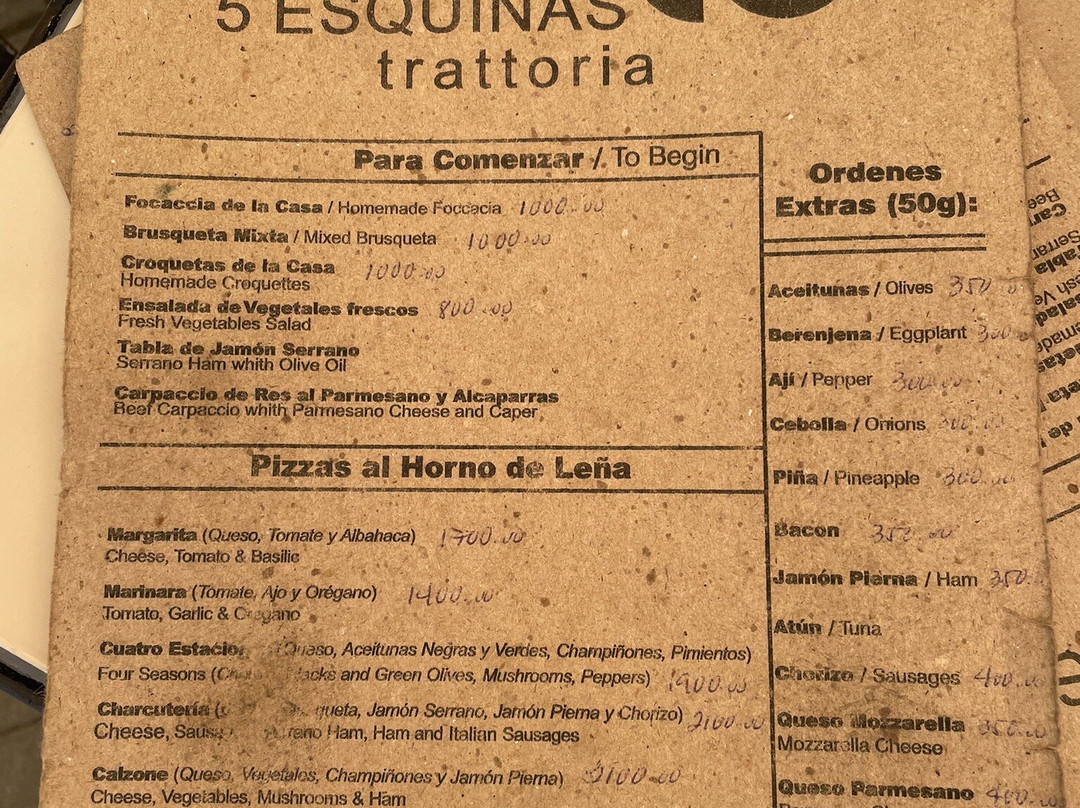 5 ESQUINAS
trattoria
Para Comenzar / To Begin
Focaccia de la Casa / Homemade Foccacia 1000.00
Brusqueta Mixta / Mixed Brusqueta 1000.00
Croquetas de la Casa 1000.00
Homemade Croquettes
Ensalada de Vegetales frescos 800.00
Fresh Vegetables Salad
Tabla de Jamón Serrano
Serrano Ham whith Olive Oil
Carpaccio de Res al Parmesano y Alcaparras
Beef Carpaccio whith Parmesano Cheese and Caper
Pizzas al Horno de Leña
Margarita (Queso, Tomate y Albahaca) 1700.00
Cheese, Tomato & Basilic
Marinara (Tomate, Ajo y Orégano) 1400.00
Tomato, Garlic & Oregano
Cuatro (Queso, Aceitunas Negras y Verdes, Champiñones, Pimientos)
Four Seasons and Green Olives, Mushrooms, Peppers) 1900.00
Charcutería Jamón Serrano, Jamón Pierna y Chorizo) 2100.00
Cheese, Ham, Ham and Italian Sausages
Calzone (Queso, Vegetales, Champiñones y Jamón Pierna) 2100.00
Cheese, Vegetables, Mushrooms & Ham
Ordenes
Extras (50g):
Aceitunas / Olives 350
Berenjena / Eggplant 300
Ají / Pepper 300.00
Cebolla / Onions 300.00
Piña / Pineapple 300.00
Bacon 350.00
Jamón Pierna / Ham 350
Atún / Tuna
Chorizo / Sausages 400
Queso Mozzarella 350
Mozzarella Cheese
Queso Parmesano 400